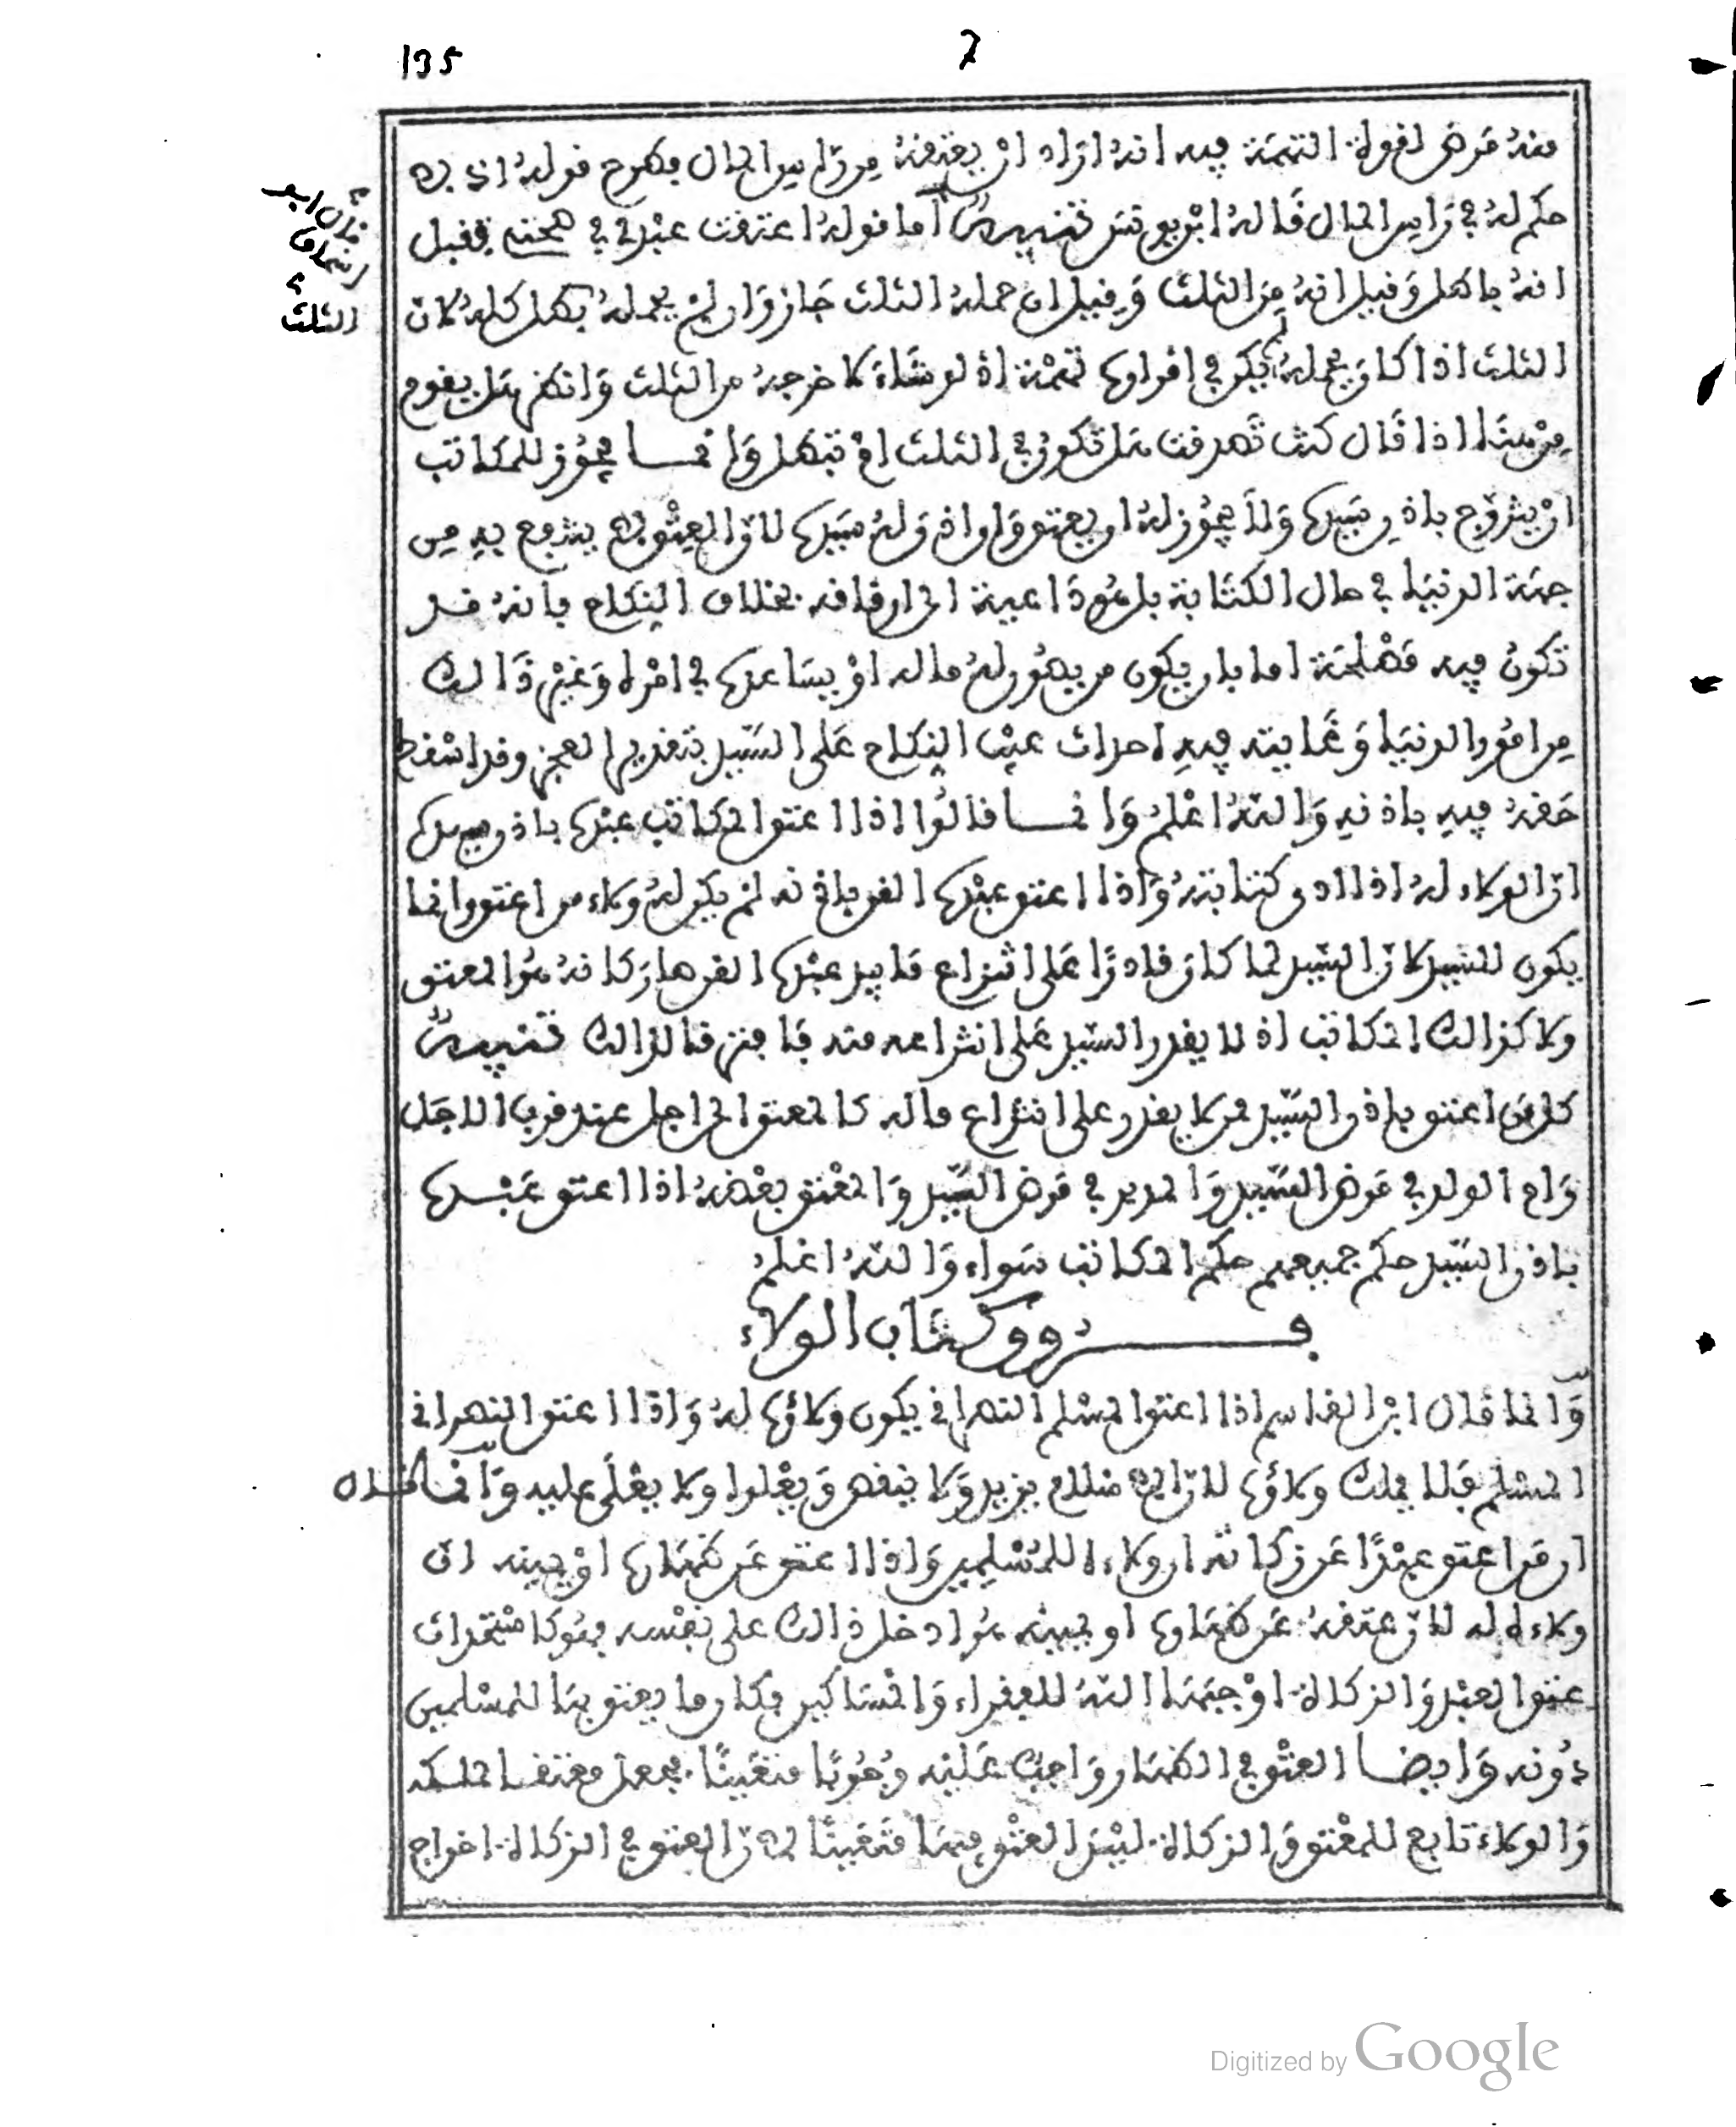 135
7
منه مرض لقوة التهمة فيه انه اراد ان يعتقه من راس المال فطرح قوله اذ لا
حكم له في راس المال قاله ابن يونس تنبيه اما قوله اعتقت عبدي في صحتي فقيل
انه باطل وقيل انه من الثلث وقيل ان حمله الثلث جاز وان لم يحمله بطل كله لان
الثلث اذا كان يحمله لم يكن في اقراره تهمة اذ لو شاء لاخرجه من الثلث وانظر هل يقوم
من هنا اذا قال كنت تصدقت هل تكون في الثلث او تبطل وانما يجوز للمكاتب
ان يتزوج باذن سيده ولا يجوز له ان يعتق وان اذن له سيده لان العتق لا ينتفع به من
جهة الدنيا في حال الكتابة بل هو داعية الى ارقاقه بخلاف النكاح فانه قد
تكون فيه مصلحة اما بان يكون من يصون له ماله او يساعده في امره وغير ذالك
من امور الدنيا وغايته فيه احداث عيب النكاح على السيد بتقدير العجز وقد اسقط
حقه فيه باذنه والله اعلم وانما قالوا اذا اعتق المكاتب عبده باذن سيده
ان الولاء له اذا ادى كتابته واذا اعتق عبده القن باذنه لم يكن له ولاء من اعتق وانما
يكون للسيد لان السيد لما كان قادرا على انتزاع ما بيد عبده القن صار كانه هو المعتق
ولا كذالك المكاتب اذ لا يقدر السيد على انتزاعه منه فافترقا لذالك تنبيه
كل من اعتق باذن السيد ممن لا يقدر على انتزاع ماله كالمعتق الى اجل عند قرب الاجل
وام الولد في مرض السيد والمدبر في مرض السيد والمعتق بعضه اذا اعتق عبده
باذن السيد حكم جميعهم حكم المكاتب سواء والله اعلم
فروق كتاب الولاء
وانما قال ابن القاسم اذا اعتق المسلم النصراني يكون ولاؤه له واذا اعتق النصراني
المسلم فلا يملك ولاؤه لان الاسلام يزيد ولا ينقص ويعلوا ولا يعلى عليه وانما قال
ان من اعتق عبدا عن زكاته ان ولاءه للمسلمين واذا اعتق عن ظهاره او يمينه ان
ولاءه له لان عتقه عن ظهاره او يمينه هو ادخل ذالك على نفسه فهو كاستحداث
عتق العبد والزكاة اوجبها الله للفقراء والمساكين فكان ما يعتق بها للمسلمين
دونه وايضا العتق في الظهار واجب عليه وجوبا متعينا فجعل معتقا لملكه
والولاء تابع للمعتق والزكاة ليس العتق فيها متعينا لان العتق في الزكاة اخراج
الثلث
Digitized by Google